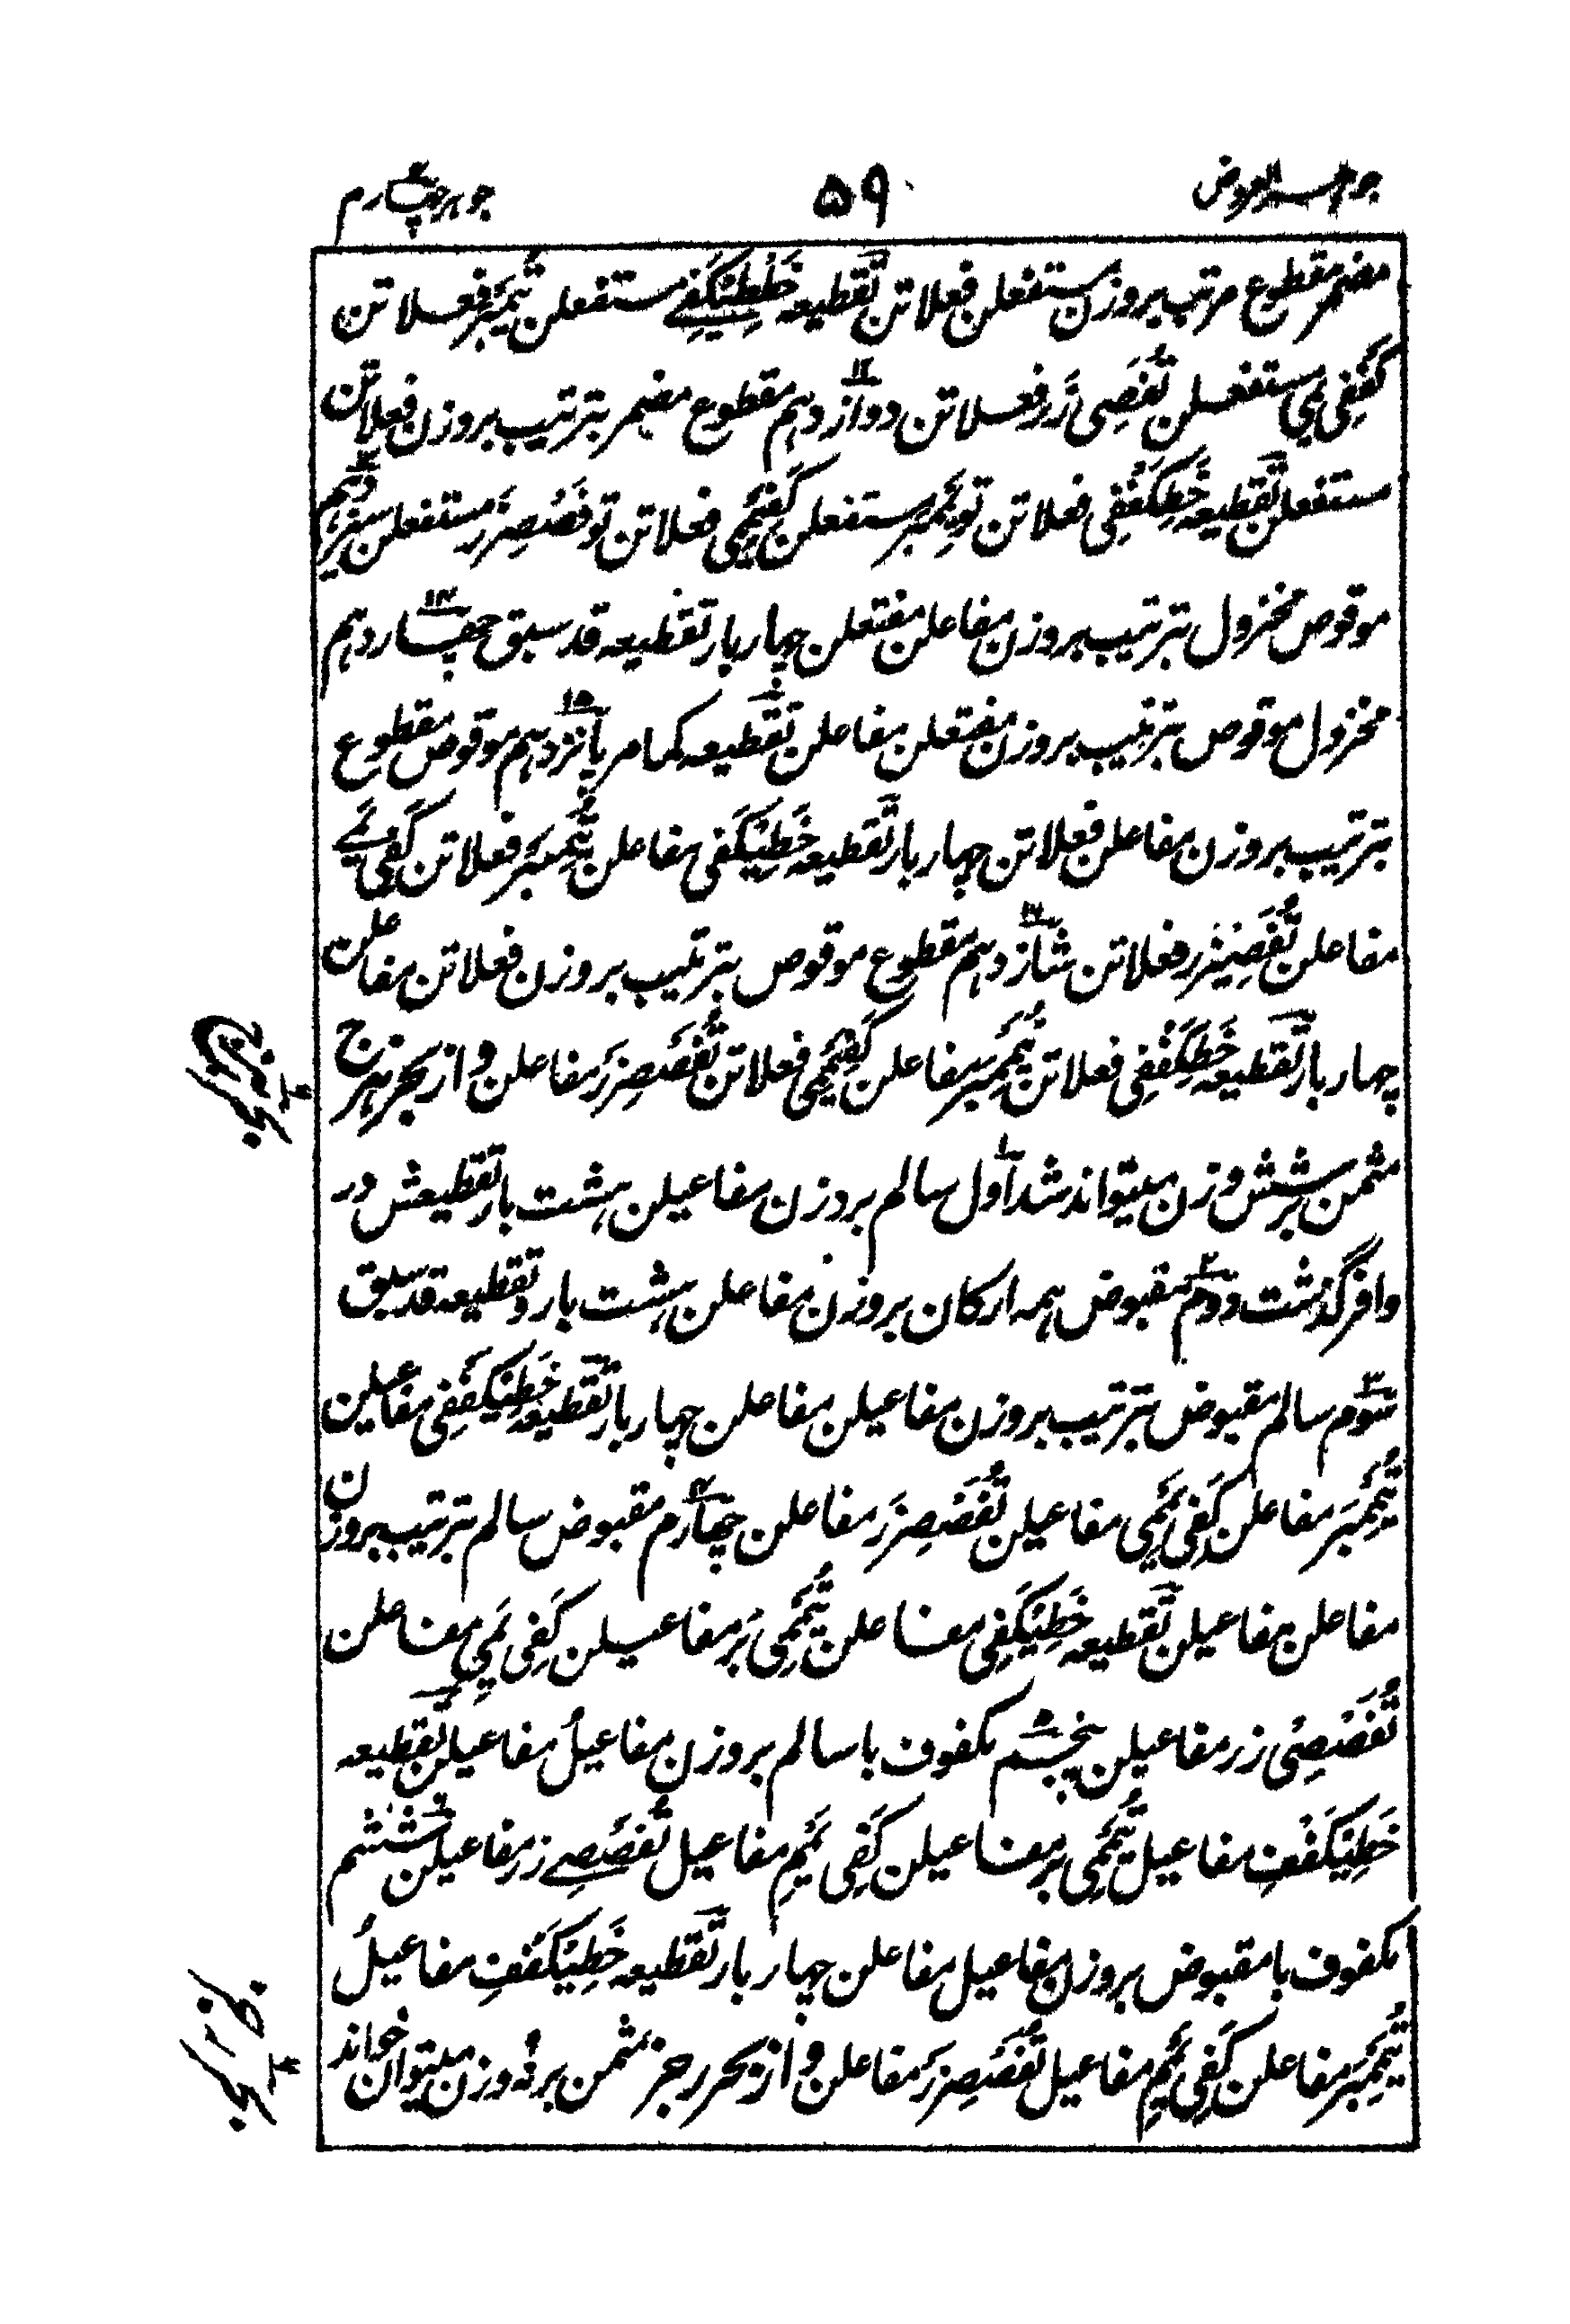 جواهر العروض ۵۹ جوهر چهارم
مضمر مقطوع مرتب بروزن مستفعلن فعلاتن تقطیعه خَطِطِیْنکَفِے مستفعلن تُمِیَبَر فعلاتن
کَفِی یمی مستفعلن تُفَصِی زَر فعلاتن دوازدهم مقطوع مضمر بترتیب بروزن فعلاتن
مستفعلن تقطیعه خَطِکَفِفِی فعلاتن مستفعلن فعلاتن مستفعلن سیزدهم
موقوص مخزول بترتیب بروزن مفاعلن مفتعلن چهار بار تقطیعه قد سبق چهاردهم
مخزول موقوص بترتیب بروزن مفتعلن مفاعلن تقطیعه کما مر پانزدهم موقوص مقطوع
بترتیب بروزن مفاعلن فعلاتن چهار بار تقطیعه خَطِیْنکَفِی مفاعلن فعلاتن کَفِی یمے
مفاعلن فعلاتن شانزدهم مقطوع موقوص بترتیب بروزن فعلاتن مفاعلن
چهار بار تقطیعه خَطِکَفِفِی فعلاتن مفاعلن فعلاتن مفاعلن و از بحر هزج
مثمن بر شش وزن میتواند شد اول سالم بروزن مفاعیلن هشت بار تقطیعش در
وافر گذشت دوم مقبوض همه ارکان بروزن مفاعلن هشت بار و تقطیعه قد سبق
سوم سالم مقبوض بترتیب بروزن مفاعیلن مفاعلن چهار بار تقطیعه خَطِیْنکَفِفِی مفاعیلن
مفاعلن کَفِی یَمِی مفاعیلن تُفَصِصِزَر مفاعلن چهارم مقبوض سالم بترتیب بروزن
مفاعلن مفاعیلن تقطیعه خَطِیْنکَفِی مفاعلن بَر مفاعیلن کَفِی یَمِی مفاعلن
تُفَصِصِی زر مفاعیلن پنجم مکفوف با سالم بروزن مفاعیلُ مفاعیلن تقطیعه
خَطِیْنکَفَفِ مفاعیل بر مفاعیلن کَفِی یَمِیمِ مفاعیل تُفَصِصِے زر مفاعیلن ششم
مکفوف با مقبوض بروزن مفاعیل مفاعلن چهار بار تقطیعه خَطِیْنکَفَفِ مفاعیلُ
مفاعلن کَفِی یَمِیمِ مفاعیل تُفَصِصِزَر مفاعلن و از بحر رجز مثمن بر نُه وزن میتوان خواند
بحر هزج
بحر رجز